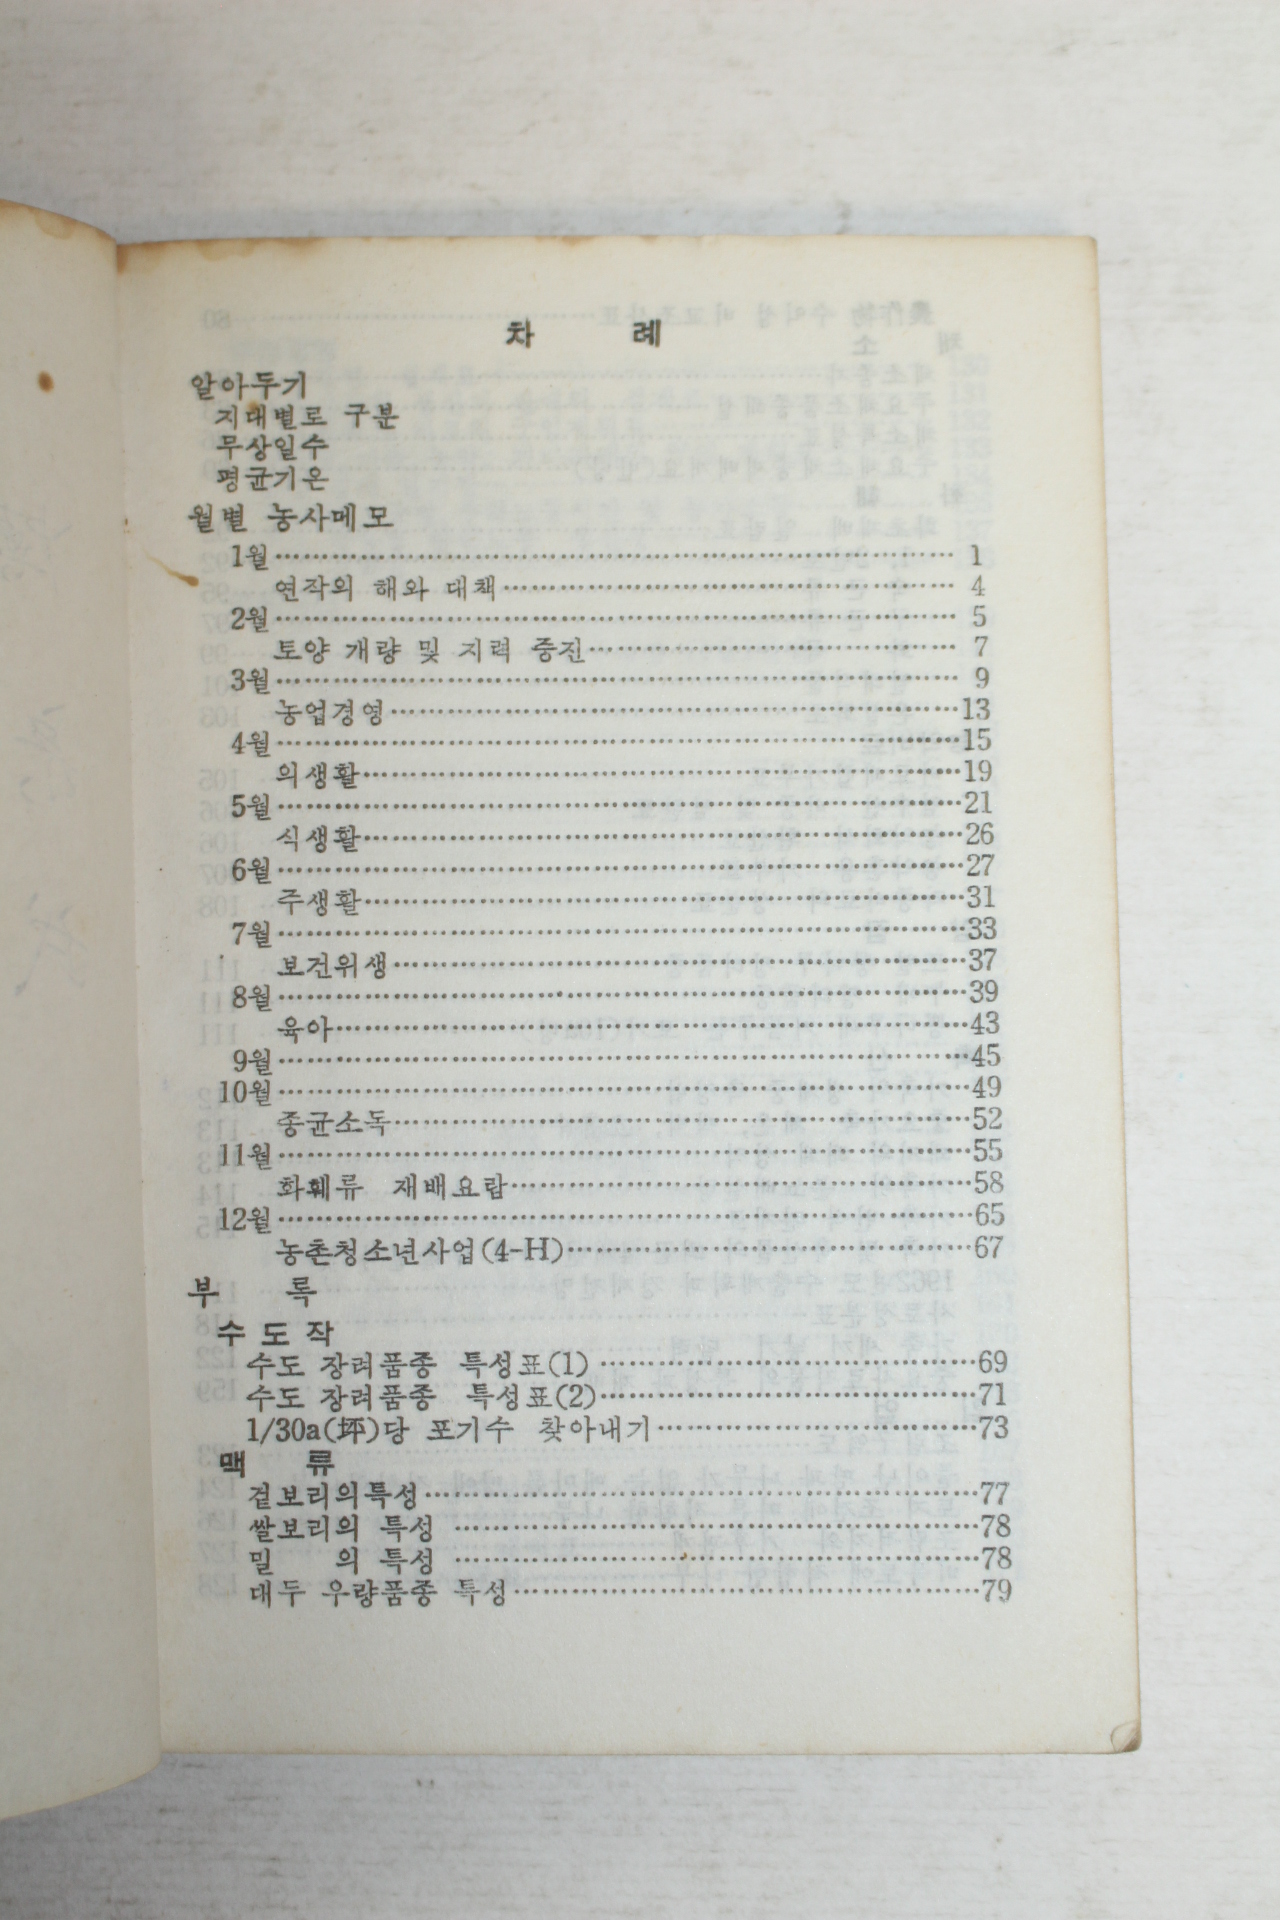 차 례
알아두기
지대별로 구분
무상일수
평균기온
월별 농사메모
1월 1
연작의 해와 대책 4
2월 5
토양 개량 및 지력 증진 7
3월 9
농업경영 13
4월 15
의생활 19
5월 21
식생활 26
6월 27
주생활 31
7월 33
보건위생 37
8월 39
육아 43
9월 45
10월 49
종균소독 52
11월 55
화훼류 재배요람 58
12월 65
농촌청소년사업(4-H) 67
부 록
수 도 작
수도 장려품종 특성표(1) 69
수도 장려품종 특성표(2) 71
1/30a(坪)당 포기수 찾아내기 73
맥 류
겉보리의특성 77
쌀보리의 특성 78
밀 의 특성 78
대두 우량품종 특성 79